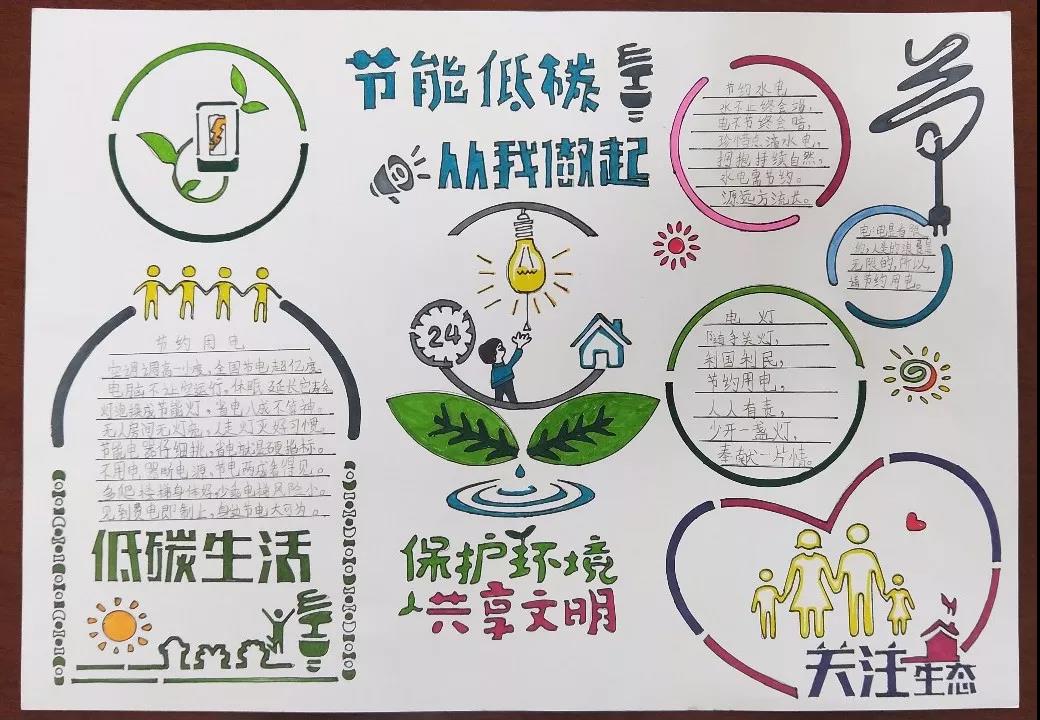 节能低碳
从我做起
节约水电
水不止终会竭，
电不节终会暗，
珍惜点滴水电，
拥抱持续自然，
水电需节约。
源远方流长。
节
电电是有限
的，人类的浪费是
无限的，所以，
请节约用电。
24
节约用电
空调调高一小度，全国节电超亿度。
电脑不让空运行，休眠延长它寿命
灯泡换成节能灯，省电八成不算神。
无人房间无灯亮，人走灯灭好习惯。
节能电器仔细挑，省电就温硬指标。
不用电器断电源，节电两成多得见。
多爬楼梯身体好，少乘电梯风险小。
见到费电即制止，身边节电大可为。
电灯
随手关灯，
利国利民，
节约用电，
人人有责，
少开一盏灯，
奉献一片情。
低碳生活
保护环境
人共享文明
关注生态